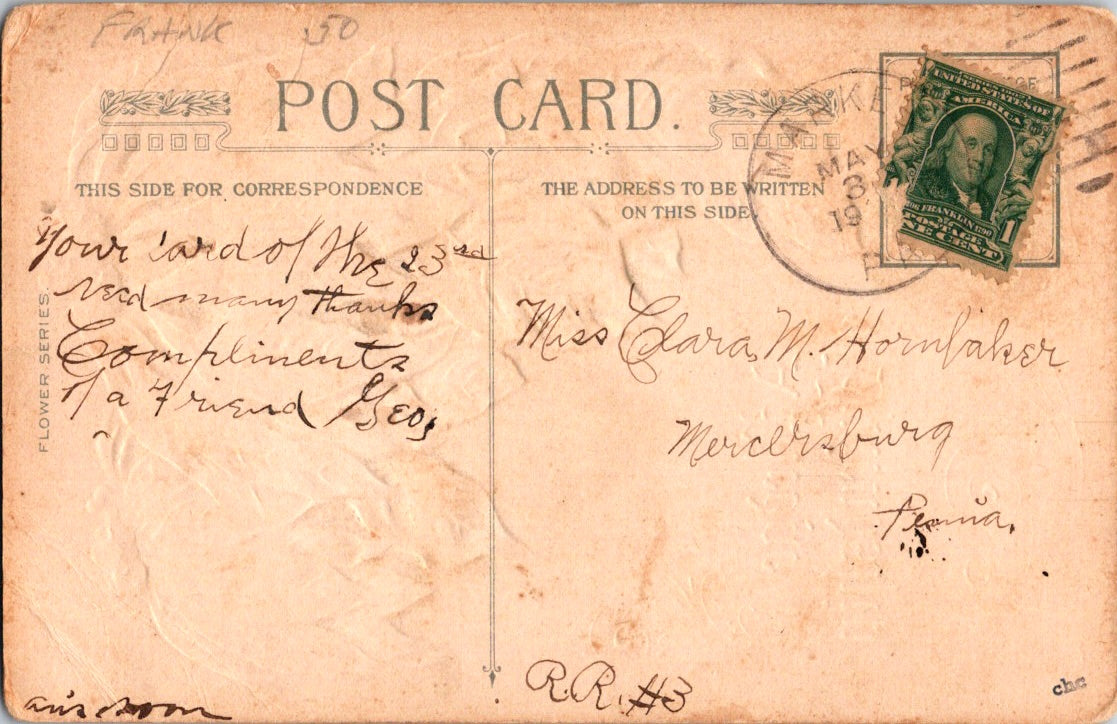 FRANK .50
POST CARD.
THIS SIDE FOR CORRESPONDENCE
THE ADDRESS TO BE WRITTEN
ON THIS SIDE.
MARKE
MAY
3
19
P
UNITED STATES OF
AMERICA
FRANKLIN 1790
POSTAGE
ONE CENT
1
Your Card of the 23rd
recd many thanks
Compliments
of a Friend Geo,
FLOWER SERIES.
Miss Clara M. Hornbaker
Mercersburg
Penna.
R.R. #3
ans soon
chc